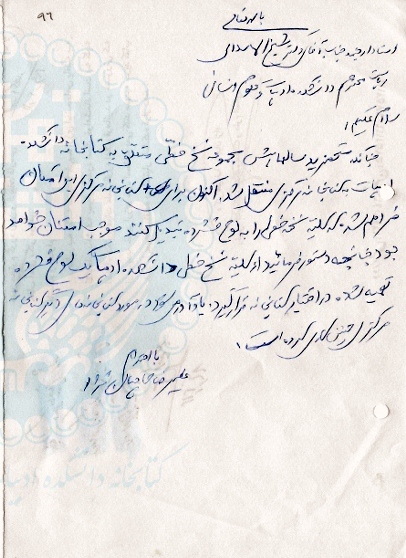 ۹۶
باسمه تعالی
استاد ارجمند جناب آقای دکتر شیخ الاسلامی
ریاست محترم دانشکده ادبیات و علوم انسانی
سلام علیکم؛
چنانکه مستحضرید سالها پیش مجموعه نسخ خطی متعلق به کتابخانه دانشکده
ادبیات به کتابخانه مرکزی منتقل شد. اکنون برای کتابخانه مرکزی این امکان
فراهم شده که کلیه نسخه خطی را به لوح فشرده تبدیل کنند موجب امتنان خواهد
بود چنانچه دستور فرمایید از کلیه نسخ خطی دانشکده ادبیات یک لوح فشرده
تهیه شده در اختیار کتابخانه قرار گیرد. یادآور می‌شود در مورد کتابخانه‌های دیگر کتابخانه
مرکزی چنین کاری کرده است.
با احترام
علیرضا حاجیان نژاد
کتابخانه دانشکده ادبیات